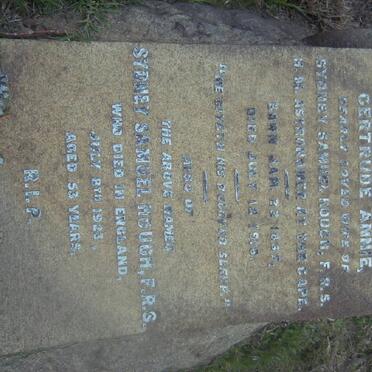 GERTRUDE ANNIE,
DEARLY LOVED WIFE OF
SYDNEY SAMUEL HOUGH, F.R.S.
H.M. ASTRONOMER AT THE CAPE.
BORN MAR. 28
DIED JULY 12
"HE GIVETH HIS BELOVED SLEEP."
ALSO OF
THE ABOVE NAMED
SYDNEY SAMUEL HOUGH, F.R.S.
WHO DIED IN ENGLAND,
JULY 8TH 1923.
AGED 53 YEARS.
R.I.P.